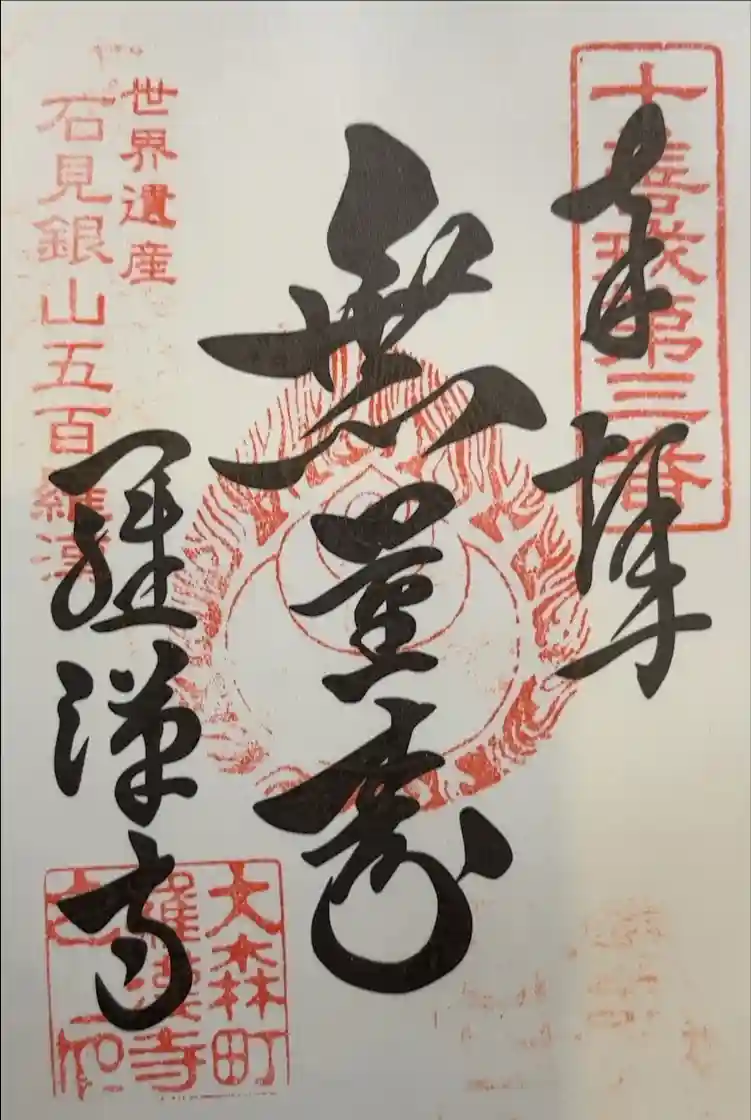 奉拝
十善戒第三番
無量寿
世界遺産
石見銀山五百羅漢
羅漢寺
大森町
羅漢寺